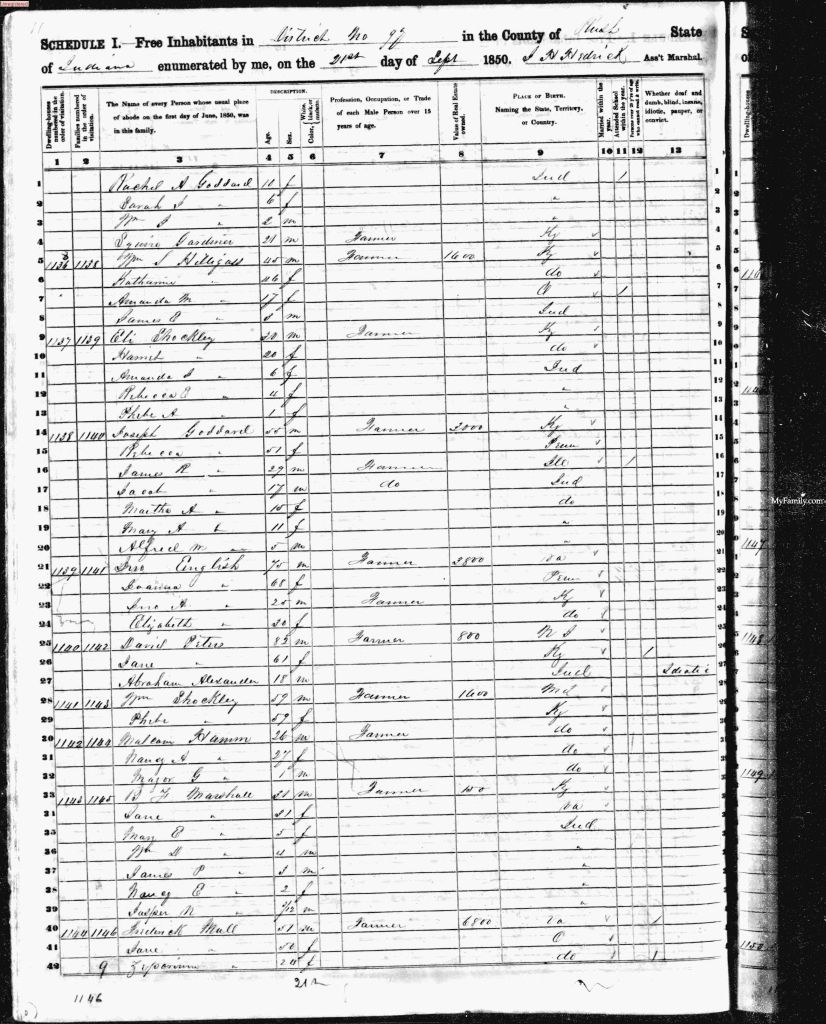 SCHEDULE I. Free Inhabitants in District No 99 in the County of Rush State
of Indiana enumerated by me, on the 21st day of Sept 1850. Ass't Marshal.
Dwelling-houses numbered in the order of visitation.
Families numbered in the order of visitation.
The Name of every Person whose usual place of abode on the first day of June, 1850, was in this family.
DESCRIPTION.
Age.
Sex.
Color, White, black, or mulatto.
Profession, Occupation, or Trade of each Male Person over 15 years of age.
Value of Real Estate owned.
PLACE OF BIRTH.
Naming the State, Territory, or Country.
Married within the year.
Attended School within the year.
Persons over 20 y'rs of age who cannot read & write.
Whether deaf and dumb, blind, insane, idiotic, pauper, or convict.
1 2 3 4 5 6 7 8 9 10 11 12 13
1 Rachel A Goddard 10 f Ind 1 1
2 Sarah J " 6 f " 2
3 Wm " 2 m " 3
4 Squire Gardiner 21 m Farmer Ky 4
5 1136 1138 Wm Hilligoss 45 m Farmer 1600 Ky 5
6 Katharine " 46 f do 6
7 Amanda M " 17 f O 1 7
8 James E " m Ind 8
9 1137 1139 Eli Shockley 30 m Farmer Ky 9
10 Harriet " 20 f do 10
11 Amanda J " 6 f Ind 11
12 Rebecca E " 4 f " 12
13 Phebe A " 1 f " 13
14 1138 1140 Joseph Goddard 55 m Farmer 3000 Ky 14
15 Rebecca " 51 f Penn 15
16 James R " 29 m Farmer 1 16
17 Jacob " 17 m do Ind 17
18 Martha A " 15 f do 18
19 Mary A " 11 f " 19
20 Alfred M " 5 m " 20
21 1139 1141 Jno English 75 m Farmer 3800 Va 21
22 Joanna " 68 f Penn 22
23 Jno A " 25 m Farmer Ky 23
24 Elizabeth " 30 f do 24
25 1140 1142 David Peters 83 m Farmer 800 N J 25
26 Jane " 61 f Ky 1 26
27 Abraham Alexander 18 m Ind Idiotic 27
28 1141 1143 Wm Shockley 59 m Farmer 1600 Md 28
29 Phebe " 59 f Ky 29
30 1142 1144 Malcom Hamm 26 m Farmer do 30
31 Nancy A " 27 f do 31
32 Major G " 1 m do 32
33 1143 1145 B F Marshall 31 m Farmer 150 Ky 33
34 Jane " 31 f Va 34
35 Mary E " 5 f Ind 35
36 Wm D " 4 m " 36
37 James P " 3 m " 37
38 Nancy E " 2 f " 38
39 Jasper N " m " 39
40 1144 1146 Frederick Mull 51 m Farmer 6800 Va 1 40
41 Jane " 50 f O 41
42 9 " 24 f do 1 42
1146
MyFamily.com